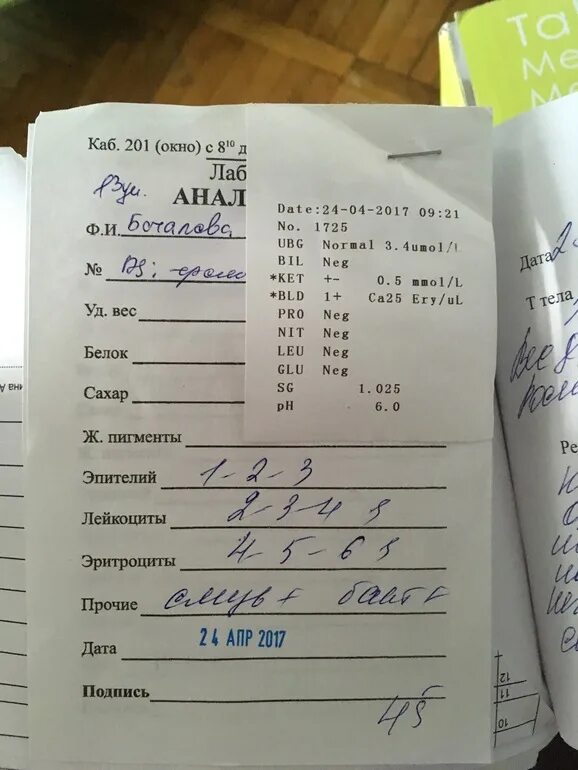 Ta
Me
Каб. 201 (окно) с 8¹⁰ д
Лаб
АНАЛ
Date:24-04-2017 09:21
No. 1725
UBG Normal 3.4umol/L
BIL Neg
*KET +- 0.5 mmol/L
*BLD 1+ Ca25 Ery/uL
PRO Neg
NIT Neg
LEU Neg
GLU Neg
SG 1.025
pH 6.0
Ф.И. Бочалова
№ DS:
Уд. вес
Белок
Сахар
Ж. пигменты
Эпителий 1-2-3
Лейкоциты 2-3-4
Эритроциты 4-5-6
Прочие слизь+ бакт+
Дата 24 АПР 2017
Подпись
Дата
Т тела
Ре
12
11
10